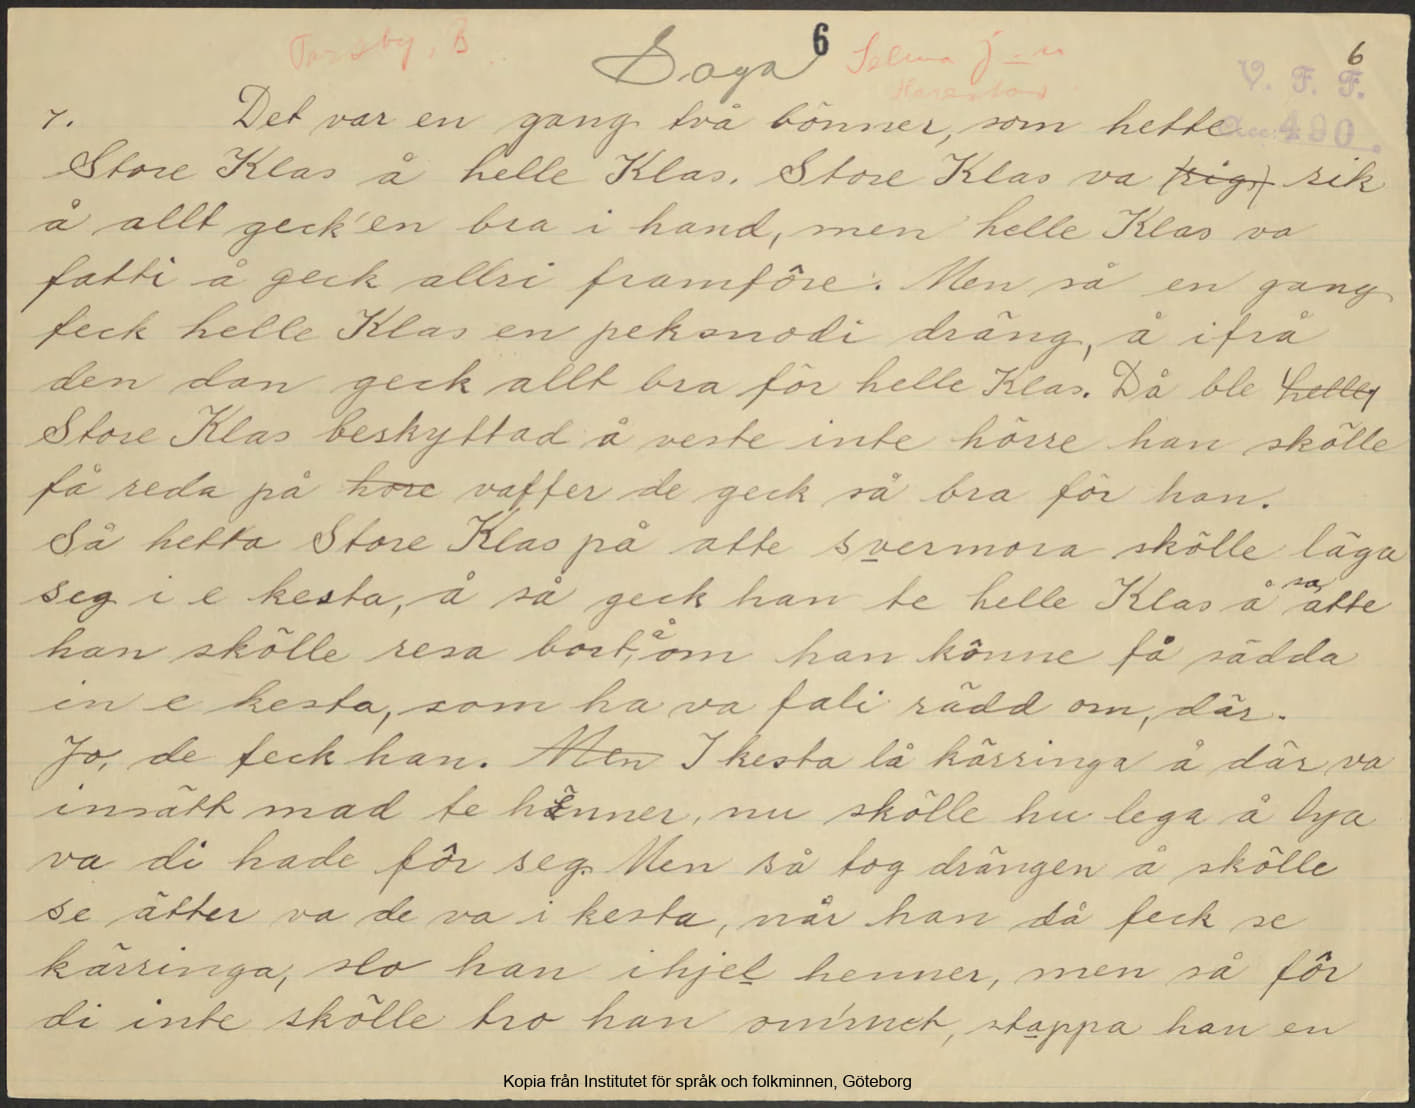 Torsby, B
Saga 6 Selma J-n 6
Harestad
V. F. F.
Acc. 490.
7. Det var en gang två bönner, som hette
Store Klas å helle Klas. Store Klas va (rig) rik
å allt geck'en bra i hand, men helle Klas va
fatti å geck allri framföre. Men så en gang
feck helle Klas en peksnodi dräng, å ifrå
den dan geck allt bra för helle Klas. Då ble (helle)
Store Klas beskyttad å veste inte hörre han skölle
få reda på hore vaffer de geck så bra för han.
Så hetta Store Klas på atte svermora skölle läga
seg i e kesta, å så geck han te helle Klas å sa atte
han skölle resa bort, å om han könne få sädda
in e kesta, som ha va fali rädd om, där.
Jo, de feck han. Men I kesta lå kärringa å där va
insätt mad te hänner, nu skölle hu lega å lya
va di hade för seg. Men så tog drängen å skölle
se ätter va de va i kesta, når han då feck se
kärringa, slo han ihjel henner, men så för
di inte skölle tro han om'met, stappa han en
Kopia från Institutet för språk och folkminnen, Göteborg